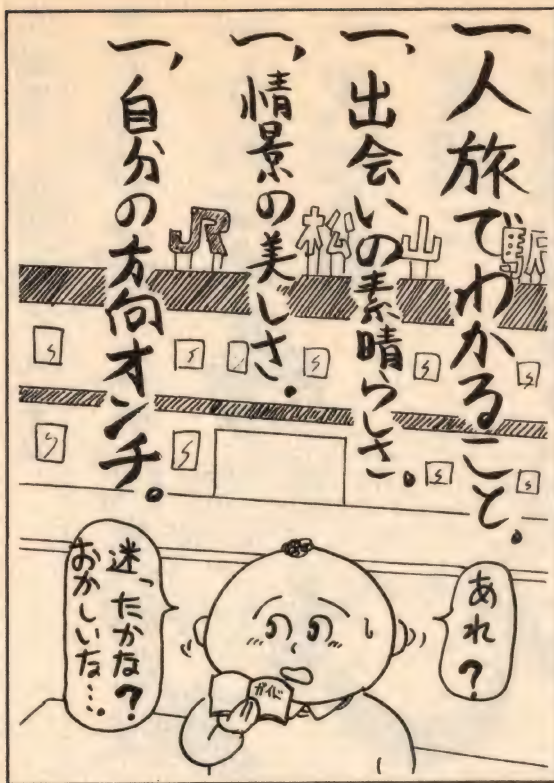 一人旅でわかること。
一、出会いの素晴らしさ。
一、情景の美しさ。
一、自分の方向オンチ。
JR松山駅
あれ?
迷ったかな?
おかしいな…。
ガイド